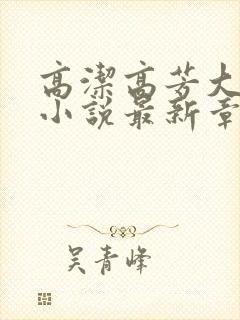 高潔高芳大
小說最新章
吳青峰